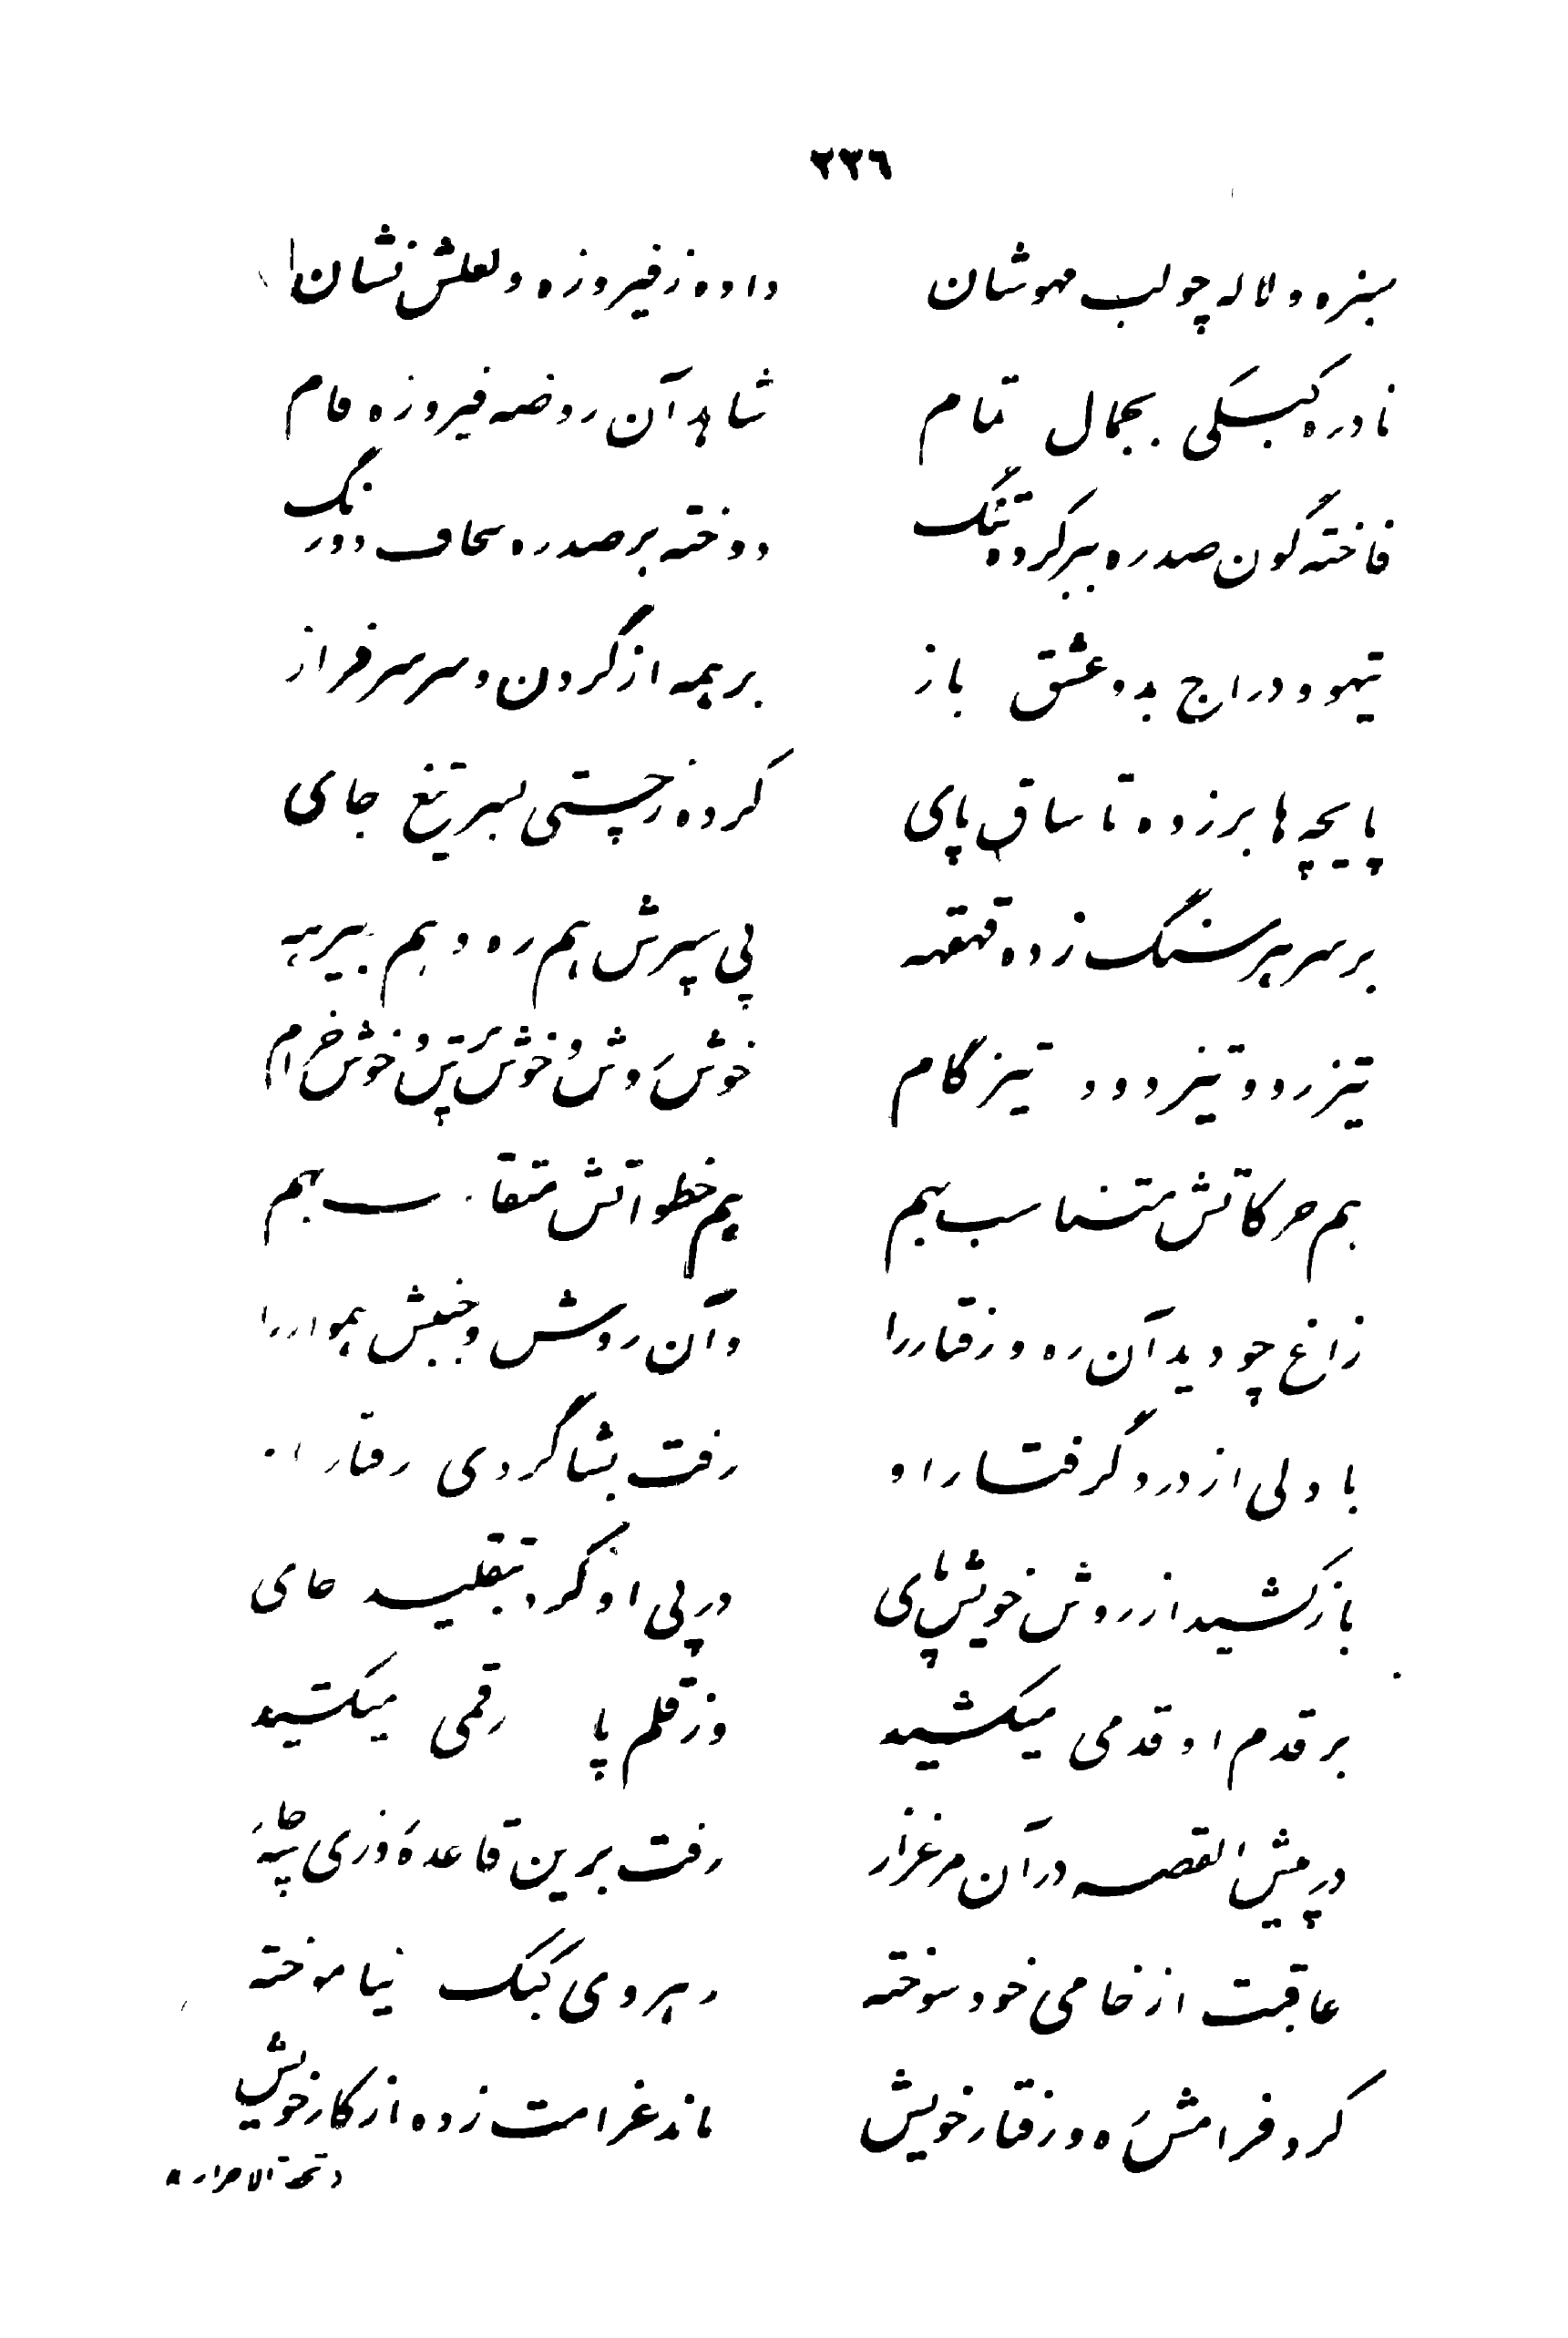 ٢٣٦
سبزه و لاله چو لب مهوشان داده ز فیروزه و لعلش نشان
نادره کبکی بجمال تمام شاهد آن روضه فیروزه فام
فاخته گون صدره ببر کرده تنگ دوخته بر صدره سجاف دورنگ
تیهو و دراج بدو عشق باز بر همه از گردن و سر سرفراز
پایچه ها برزده تا ساق پای کرده ز چستی بسر تیغ جای
بر سر هر سنگ زده قهقهه پی سپرش هم ره و هم بیرهه
تیزرو و تیزدو و تیزگام خوش روش و خوش پرش و خوش خرام
هم حرکاتش متناسب بهم هم خطواتش متقارب بهم
زاغ چو دید آن ره و رفتار را وآن روش و جنبش هموار را
با دلی از درد گرفتار او رفت بشاگردی رفتار او
باز کشید از روش خویش پای در پی او کرد بتقلید جای
بر قدم او قدمی میکشید وز قلم پا رقمی میکشید
در پیش القصه در آن مرغزار رفت برین قاعده روزی سه چار
عاقبت از خامی خود سوخته رهروی کبک نیاموخته
کرد فرامش ره و رفتار خویش ماند غرامت زده از کار خویش
«تحفة الاحرار»